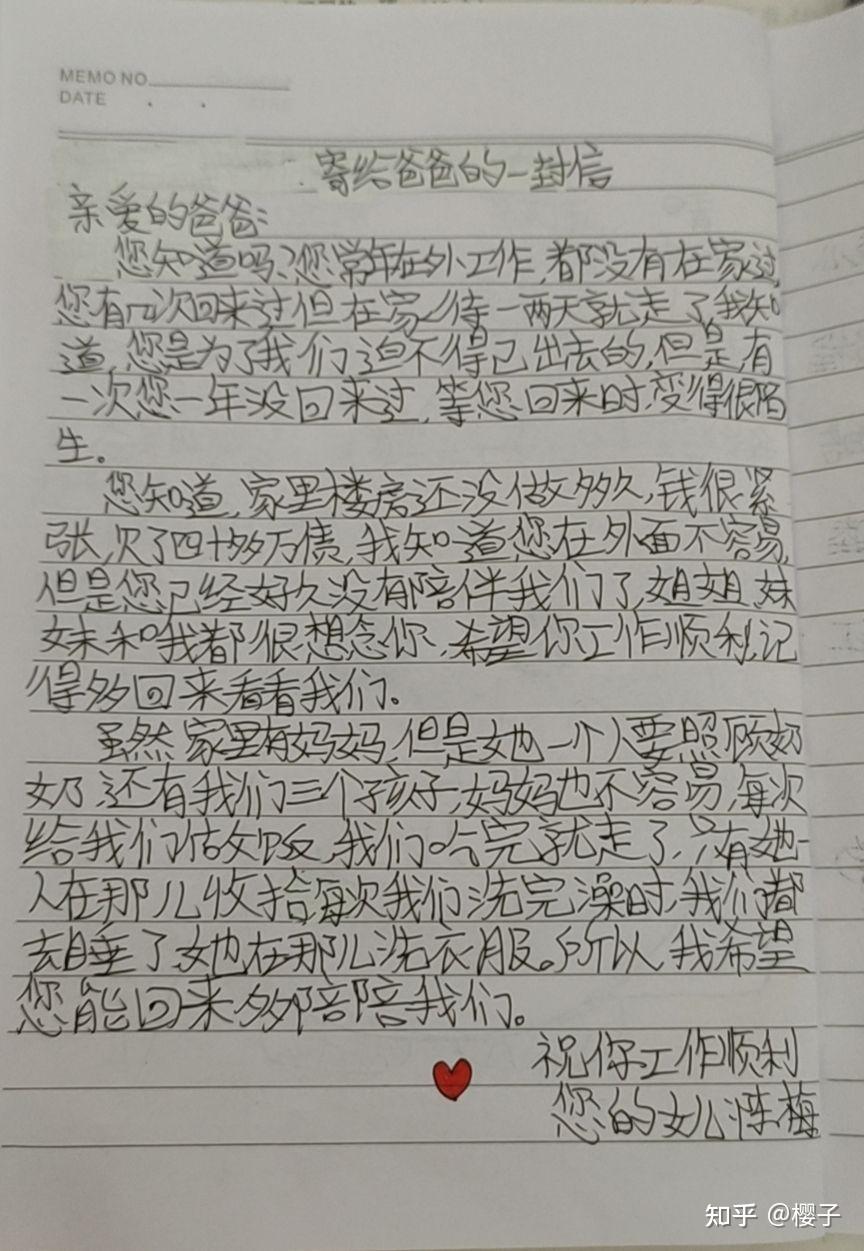 MEMO NO
DATE
寄给爸爸的一封信
亲爱的爸爸:
您知道吗?您常年在外工作,都没有在家过,
您有几次回来过但在家待一两天就走了,我知
道,您是为了我们迫不得已出去的,但是,有
一次您一年没回来过,等您回来时,变得很陌
生。
您知道,家里楼房还没做多久,钱很紧
张,欠了四十多万债,我知道您在外面不容易,
但是您已经好久没有陪伴我们了,姐姐,妹
妹和我都很想念你,希望你工作顺利,记
得多回来看看我们。
虽然家里有妈妈,但是她一个人要照顾奶
奶,还有我们三个孩子,妈妈也不容易,每次
给我们做饭,我们吃完就走了,只有她一
人在那儿收拾每次我们洗完澡时,我们都
去睡了她在那儿洗衣服。所以,我希望
您能回来多陪陪我们。
祝你工作顺利
您的女儿陈梅
知乎 @樱子